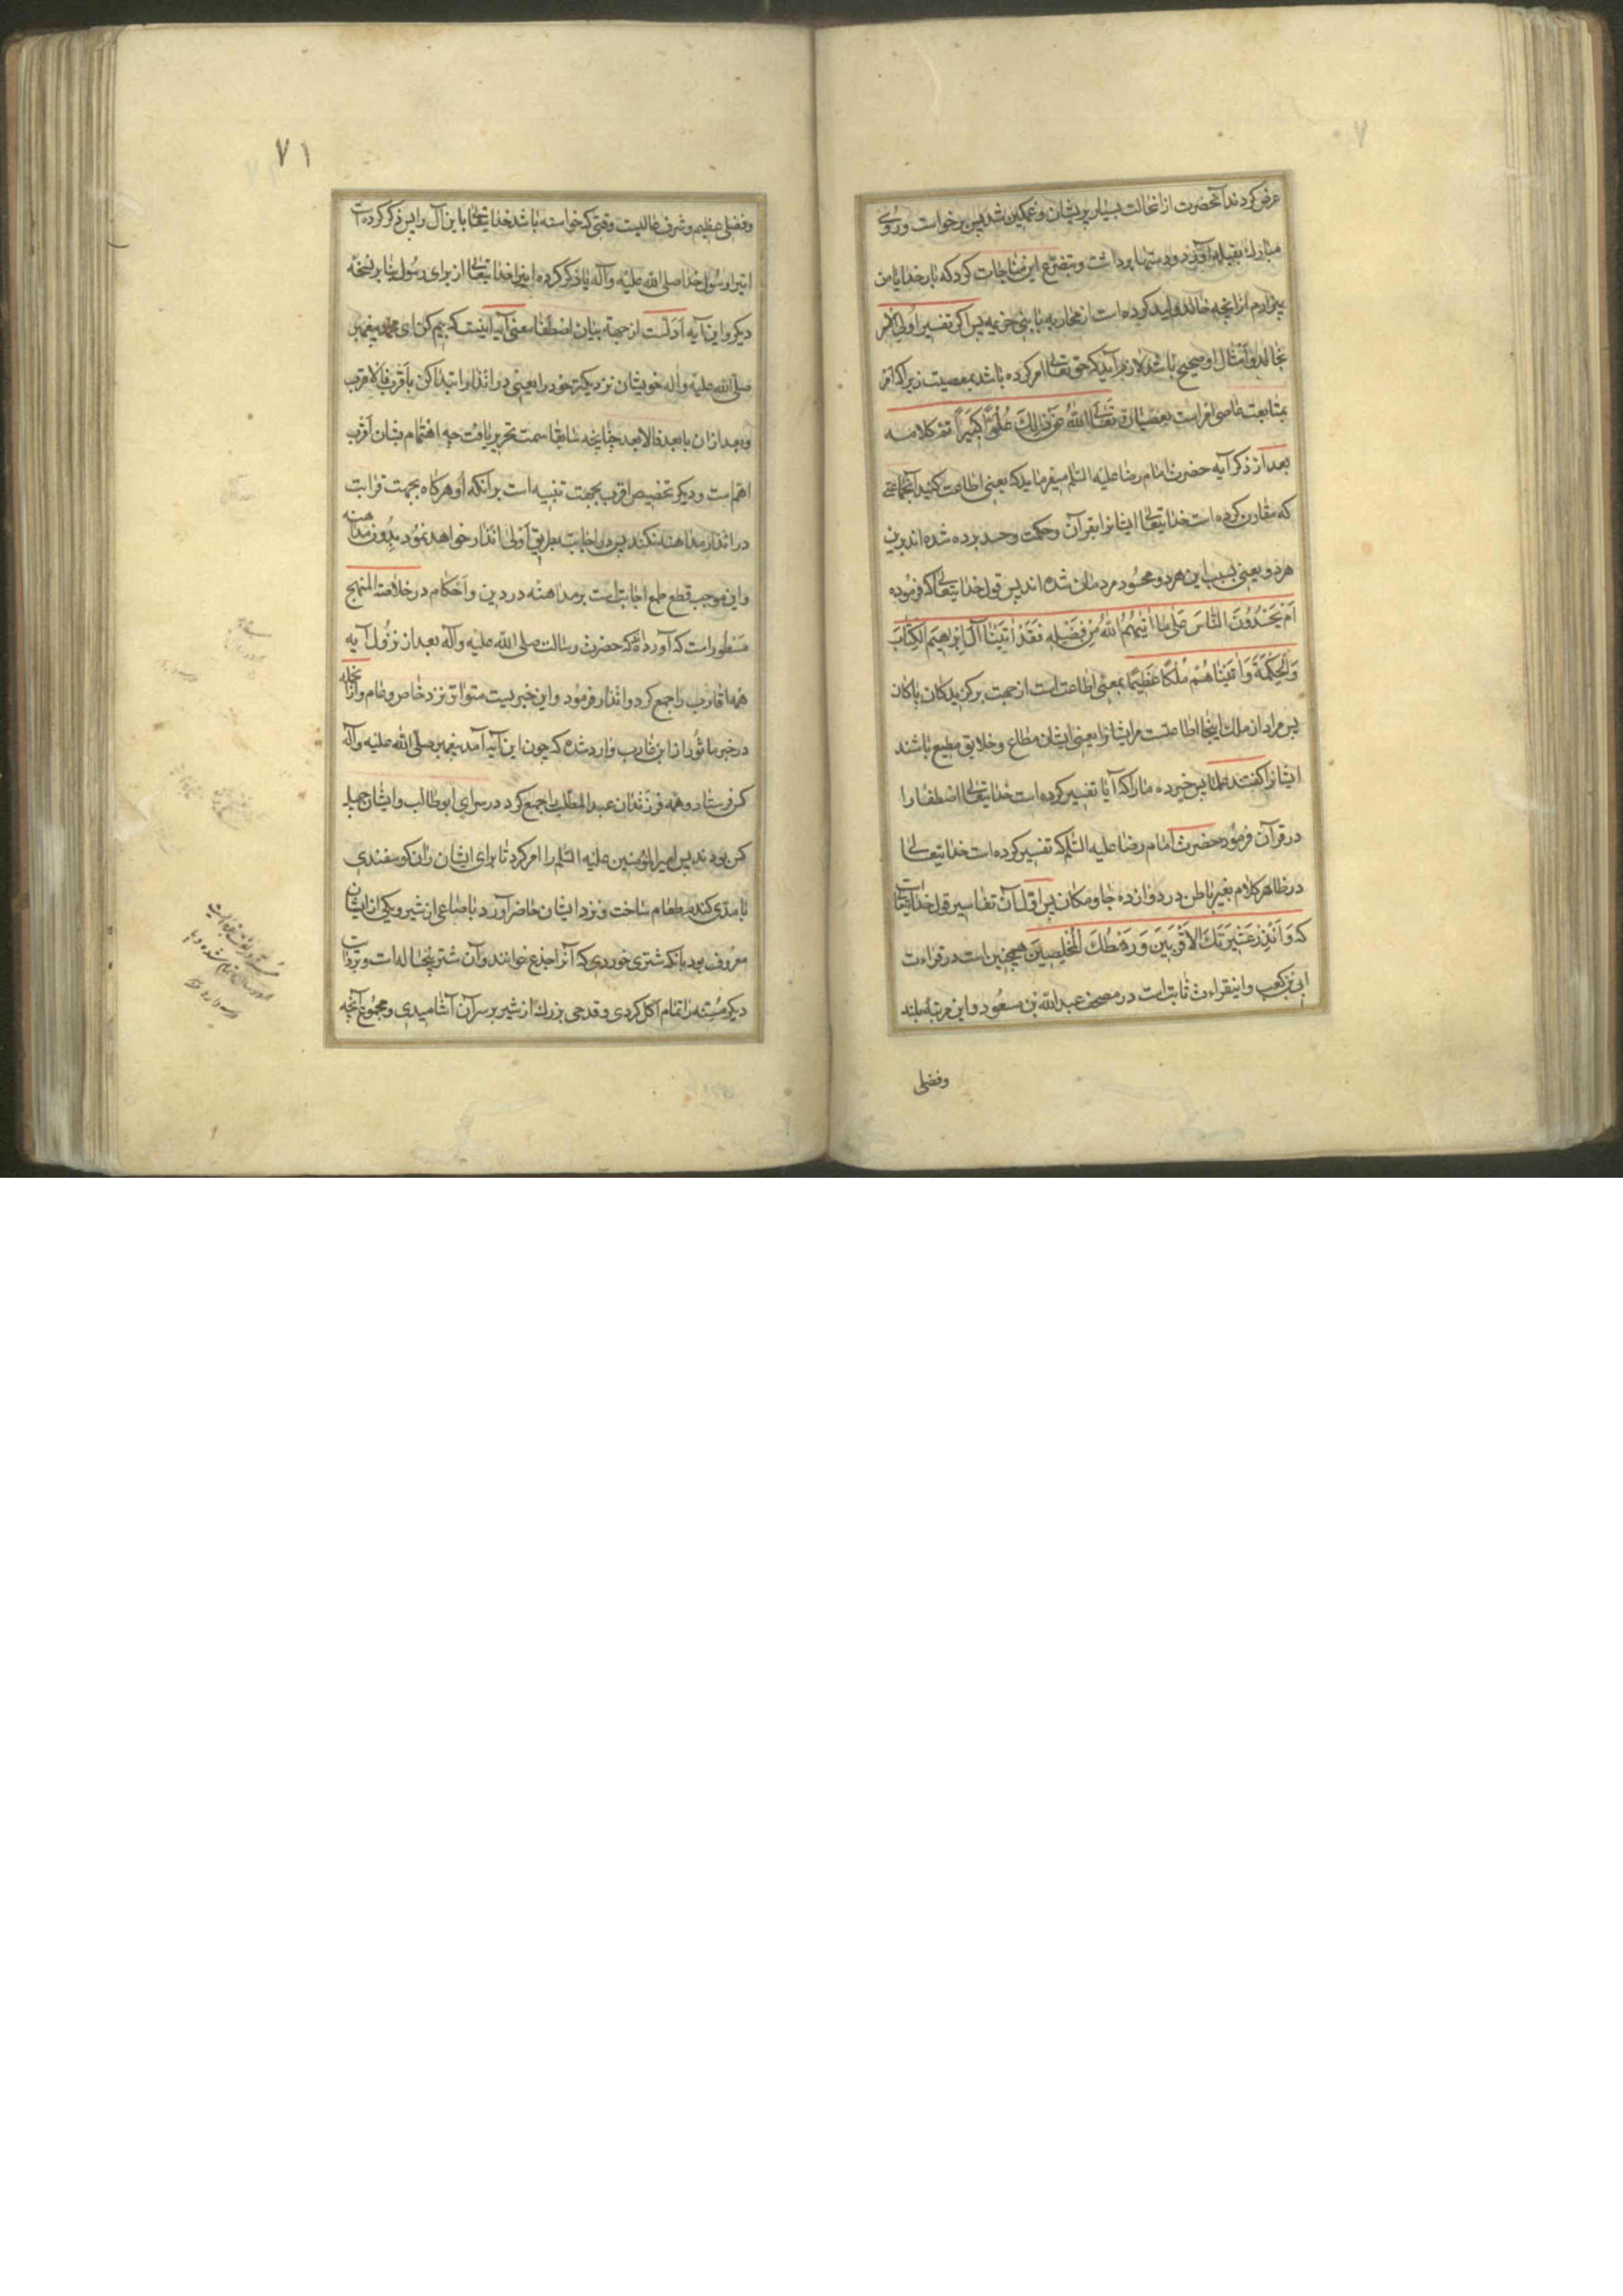 ۷۰
عرض کردند آنحضرت از انحالت بسیار پریشان و غمگین شد پس برخواست و روی
مبارک بقبله آورد و دستها برداشت و بتضرع این مناجات کرد که بار خدایا من
بیزارم از انچه خالد ولید کرده است از محاربه با بنی خزیمه پس اگر تفسیر اولی الامر
بخالد و امثال او صحیح باشد لازم آید که حق تعالی امر کرده باشد بمعصیت زیرا که امر
بمتابعت عاصی امر است بعصیان تعالی الله عن ذالک علوا کبیرا تم کلامه
بعد از ذکر آیه حضرت امام رضا علیه السلم میفرماید که یعنی اطاعت کنید آنجماعتی
که مقارن کرده است خدایتعالی ایشانرا بقرآن و حکمت و حسد برده شده اند برین
هر دو یعنی بسبب این هر دو محسود مردمان شده اند پس قول خدایتعالی که فرموده
اَمْ یَحْسُدُونَ النّاسَ عَلٰی ما اٰتیٰهُمُ اللهُ مِنْ فَضْلِهِ فَقَدْ اٰتَیْنا اٰلَ اِبْرٰهیمَ الْکِتابَ
وَالْحِکْمَةَ وَ اٰتَیْناهُمْ مُلْکًا عَظیمًا بمعنی اطاعت است از جهت برگزیدگان پاکان
پس مراد از ملک اینجا اطاعتست مرایشانرا یعنی ایشان مطاع و خلایق مطیع باشند
ایشانرا گفتند علما پس خبر ده ما را که آیا تفسیر کرده است خدایتعالی اصطفا را
در قرآن فرمود حضرت امام رضا علیه السلم که تفسیر کرده است خدایتعالی
در ظاهر کلام بغیر باطن در دوازده جا و مکان پس اول آن تفاسیر قول خدایتعالی است
که وَاَنْذِرْ عَشیرَتَکَ الْاَقْرَبینَ وَ رَهْطَکَ الْمُخْلَصینَ همچنین است در قراءت
ابی بن کعب و اینقراءت ثابت است در مصحف عبدالله بن مسعود و این مرتبهٔ بلند
وفضلی
۷۱
وفضلی عظیم و شرف عالیست وقتی که خواسته باشد خدایتعالی باین آل را پس ذکر کرده است
اینرا رسول خدا صلی الله علیه و آله یا ذکر کرده اینرا خدایتعالی از برای رسول بنا بر نسخهٔ
دیگر و این آیه اولست از جهة بیان اصطفا معنی آیه اینست که بیم کن ای محمد پیغمبر
صلی الله علیه و اله خویشان نزدیکتر خود را یعنی در انذار ابتدا کن باقرب فالاقرب
و بعد از ان بابعد فالابعد چنانچه سابقا سمت تحریر یافت چه اهتمام بشان اقرب
اهم است و دیگر تخصیص اقرب بجهت تنبیه است برانکه او هر گاه بجهت قرابت
در انذار مداهنه نکند پس در اجانب بطریق اولی انذار خواهد نمود بدون مداهنه
و این موجب قطع طمع اجانب است بر مداهنه در دین و احکام در خلاصة المنهج
مسطور است که آورده که حضرت رسالت صلی الله علیه و آله بعد از نزول آیه
همه اقارب را جمع کرد و انذار فرمود و این خبریست متواتر نزد خاص و عام و ازانجمله
در خبر ماثور از ابن عازب وارد شده که چون این آیه آمد پیغمبر صلی الله علیه و آله
کس فرستاد و همه فرزندان عبدالمطلب را جمع کرد در سرای ابوطالب و ایشان چهل
کس بودند پس امیرالمؤمنین علیه السلم را امر کرد تا برای ایشان ران گوسفندی
با مدی گندم طعام ساخت و نزد ایشان حاضر آورد با صاعی از شیر و یکی از ایشان
معروف بود بانکه شتری خوردی که آنرا جذع خوانند و آن شتر پنجساله است و بروایت
دیگر مسنه را تمام اکل کردی و قدحی بزرگ از شیر بر سر آن آشامیدی و مجموع آنچه